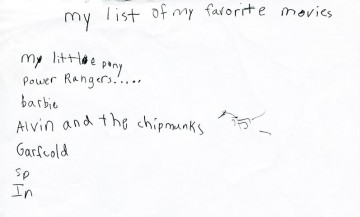 my list of my favorite movies
my little pony
Power Rangers.....
barbie
Alvin and the chipmunks
Garfeold
sp
In